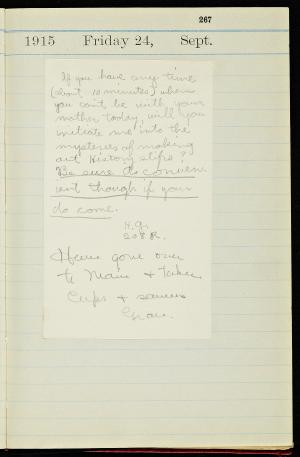 267
1915 Friday 24, Sept.
If you have any time
(about 10 minutes) when
you can't be with your
mother today, will you
initiate me into the
mysteries of making
out History slips?
Be sure its conven
ient though if you
do come.
H.G.
208 R.
Have gone over
to Main + taken
Cups + saucers
Grace.